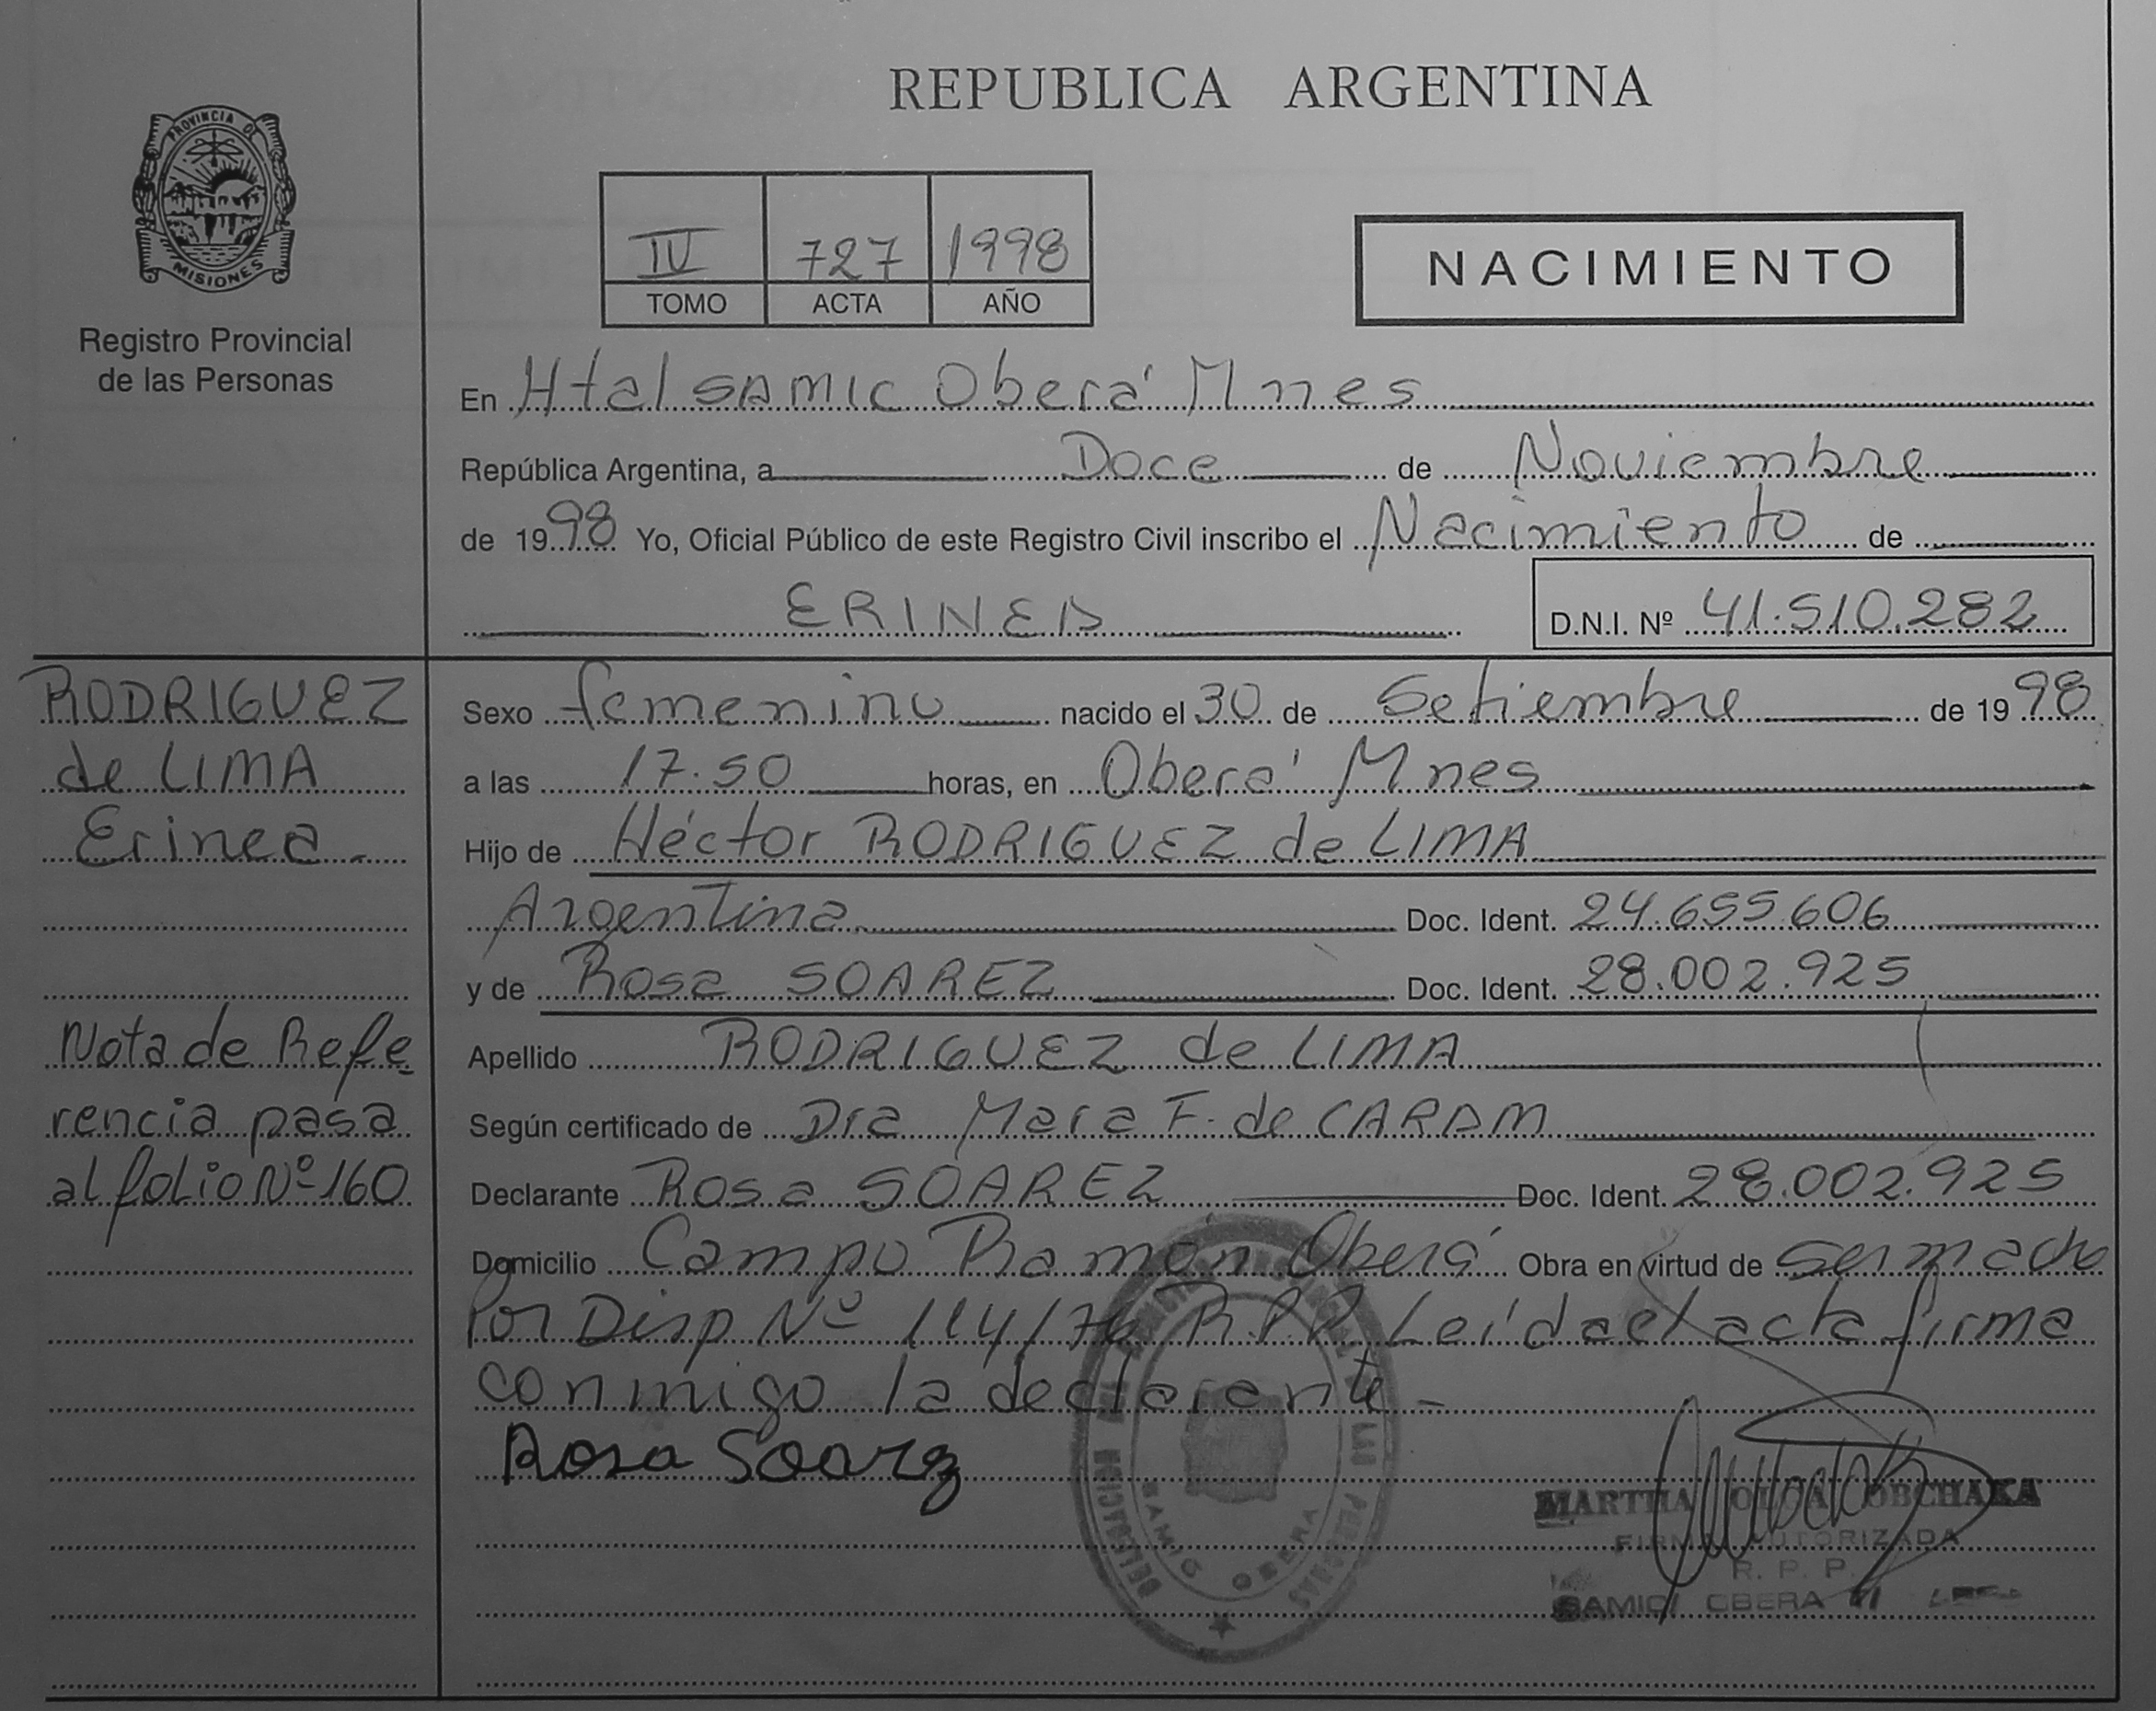 REPUBLICA ARGENTINA
PROVINCIA DE
MISIONES
Registro Provincial
de las Personas
IV 727 1998
TOMO ACTA AÑO
NACIMIENTO
En Htal SAMIC Oberá Mnes
República Argentina, a Doce de Noviembre
de 1998 Yo, Oficial Público de este Registro Civil inscribo el Nacimiento de
ERINEA
D.N.I. Nº 41.510.282
RODRIGUEZ
de LIMA
Erinea.-
Nota de Refe
rencia pasa
al folio Nº 160
Sexo femenino nacido el 30 de Setiembre de 1998
a las 17.50 horas, en Oberá Mnes
Hijo de Héctor RODRIGUEZ de LIMA
Argentina Doc. Ident. 24.655.606
y de Rosa SOAREZ Doc. Ident. 28.002.925
Apellido RODRIGUEZ de LIMA
Según certificado de Dra Mara F. de CARAM
Declarante Rosa SOAREZ Doc. Ident. 28.002.925
Domicilio Campo Ramón Oberá Obra en virtud de
por Disp Nº 114/76 R.P.P. Leída el acta firma
conmigo la declarante-
Rosa Soarez
DELEGACION
LAS PERSONAS
SAMIC OBERA
MARTHA OLGA
FIRMA AUTORIZADA
R. P. P.
SAMIC OBERA